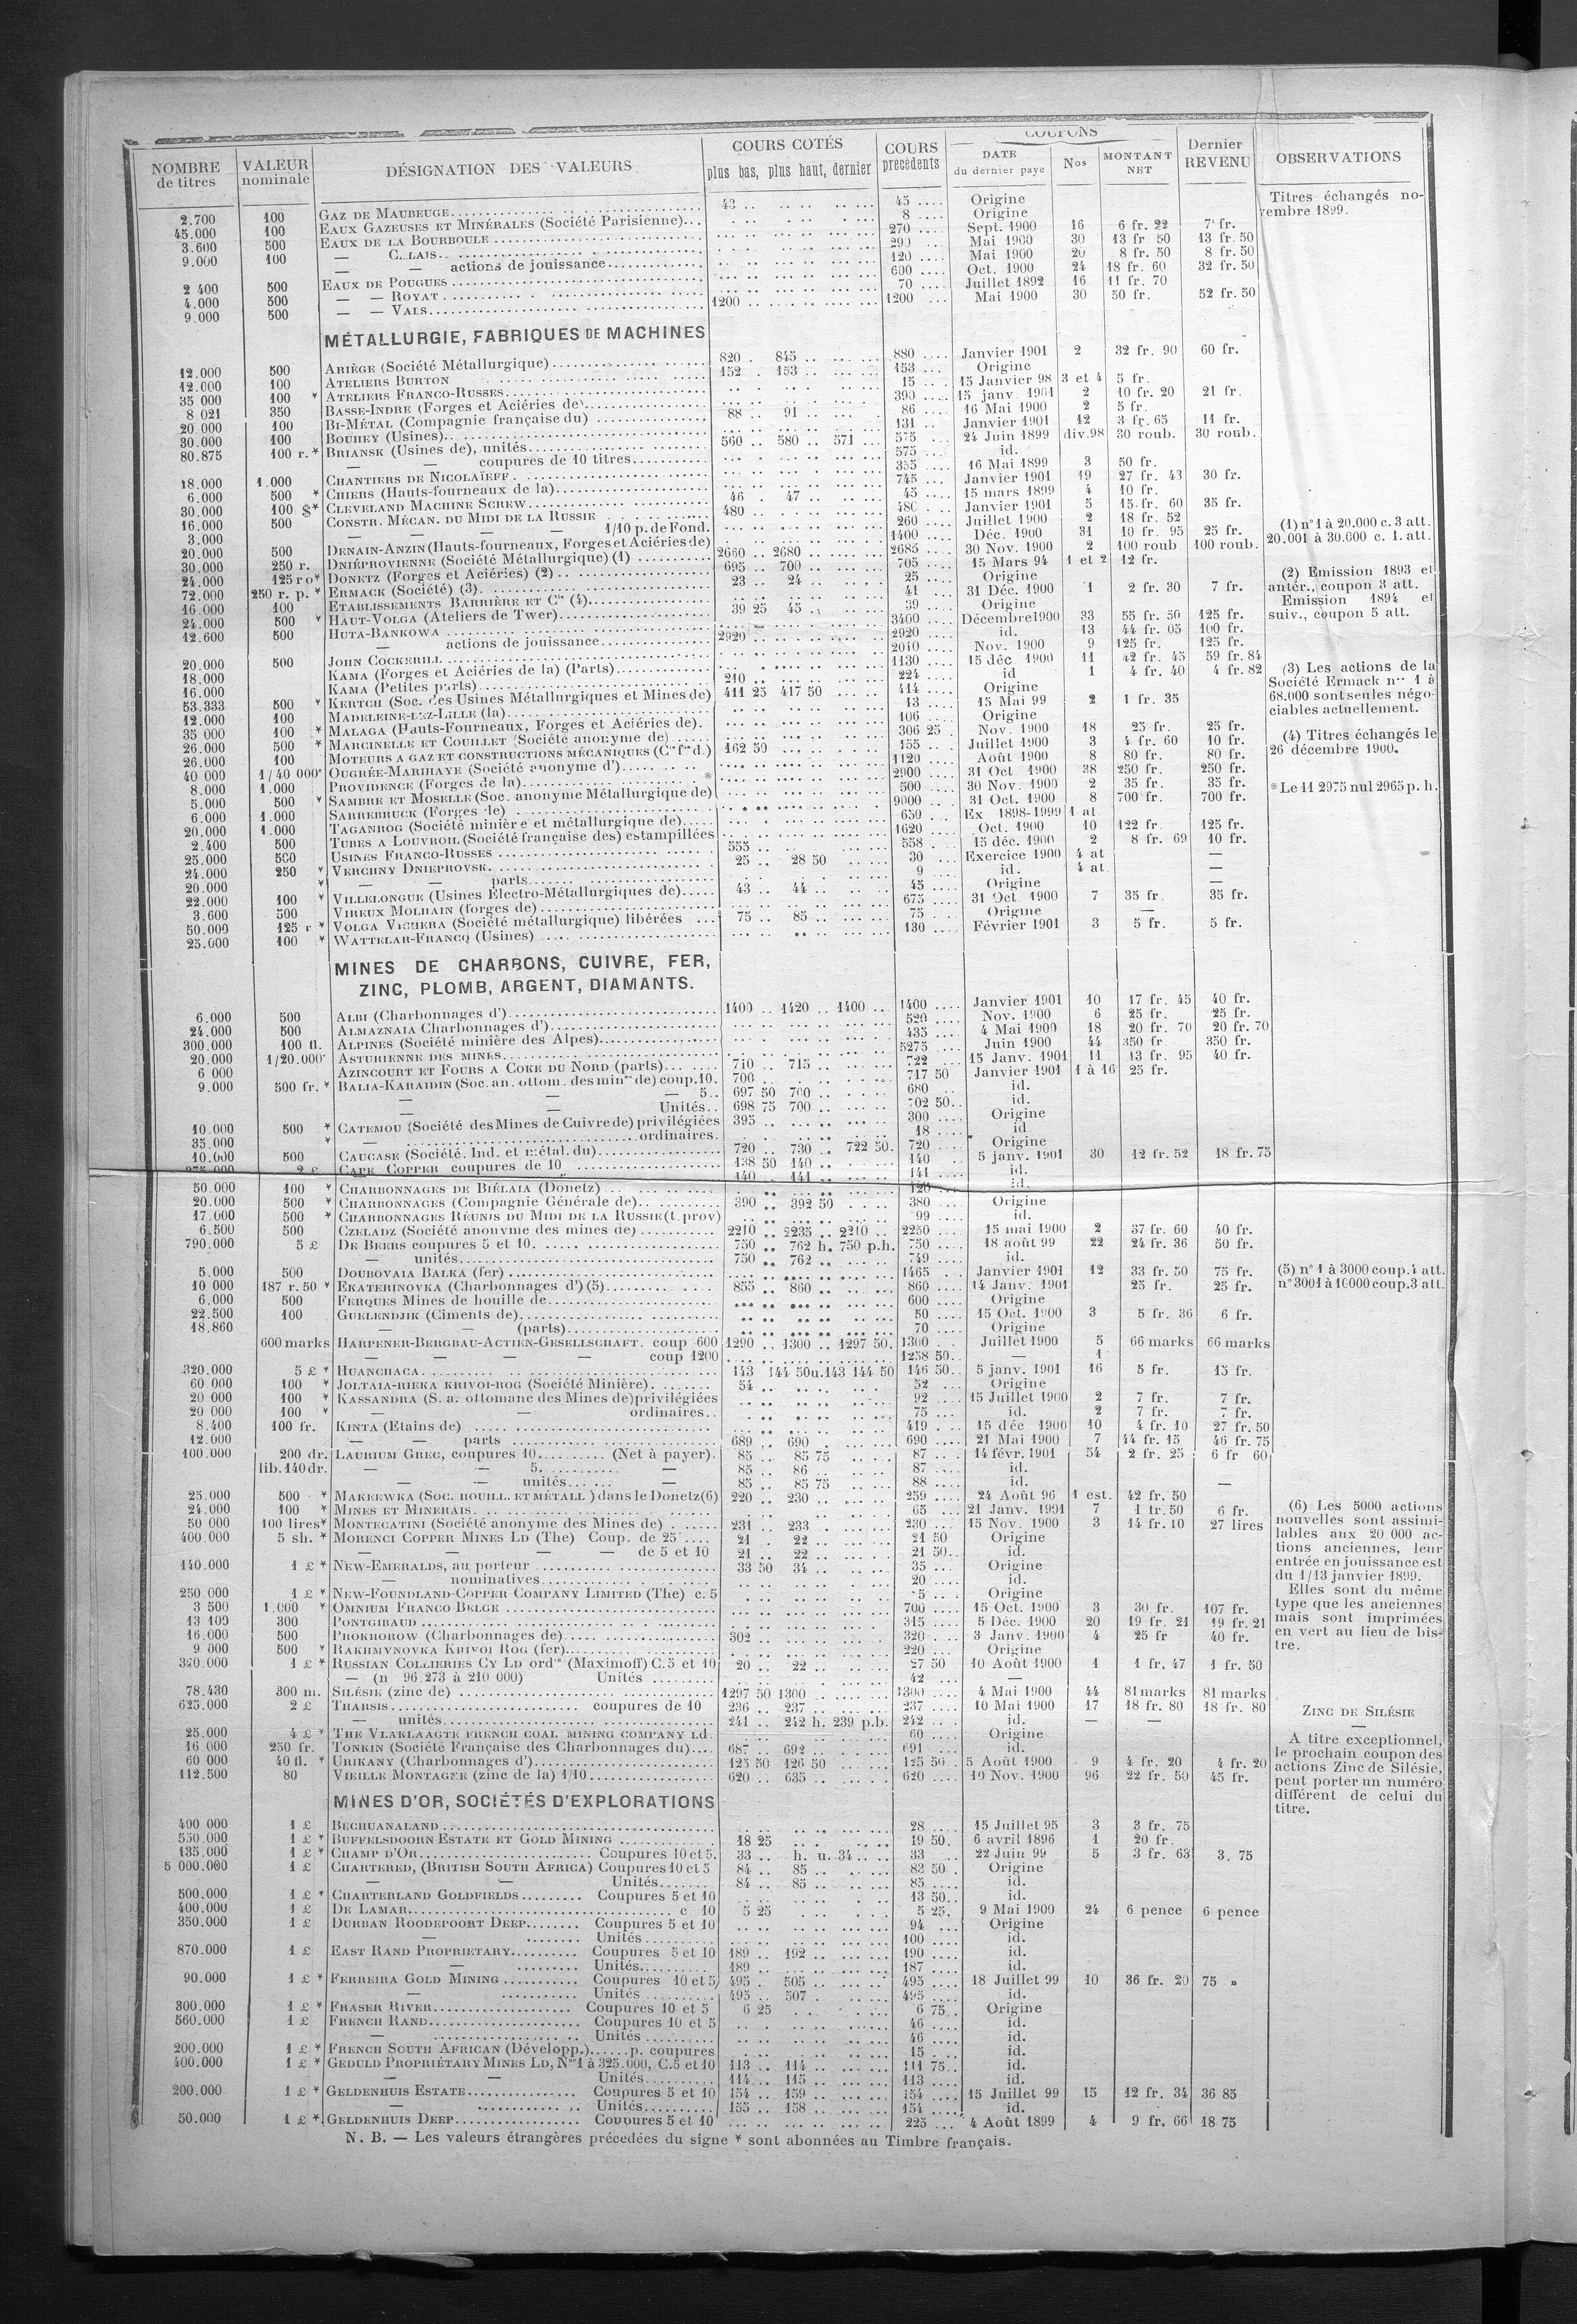 NOMBRE de titres | VALEUR nominale | DÉSIGNATION DES VALEURS | COURS COTÉS plus bas, plus haut, dernier | COURS précédents | COUPONS DATE du dernier payé | Nos | MONTANT NET | Dernier REVENU | OBSERVATIONS
2.700 100 GAZ DE MAUBEUGE 43 .. 45 .... Origine
45.000 100 EAUX GAZEUSES ET MINÉRALES (Société Parisienne) 8 .... Origine
3.600 500 EAUX DE LA BOURBOULE 270 .... Sept. 1900 16 6 fr. 22 7 fr.
9.000 100 — 290 Mai 1900 30 13 fr 50 13 fr. 50
— — actions de jouissance 120 Mai 1900 20 8 fr. 50 8 fr. 50
2 400 500 EAUX DE POUGUES 600 .... Oct. 1900 24 18 fr. 60 32 fr. 50
4.000 500 — — ROYAT 70 .... Juillet 1892 16 11 fr. 70
9.000 500 — — VALS 1200 .. 1200 .... Mai 1900 30 50 fr. 52 fr. 50
Titres échangés no-
vembre 1899.
MÉTALLURGIE, FABRIQUES DE MACHINES
12.000 500 ARIÈGE (Société Métallurgique) 820 . 845 .. 880 .... Janvier 1901 2 32 fr. 90 60 fr.
12.000 100 ATELIERS BURTON 152 . 153 .. 153 .... Origine
35 000 100 * ATELIERS FRANCO-RUSSES 15 15 Janvier 98 3 et 4 5 fr.
8 021 350 BASSE-INDRE (Forges et Aciéries de) 390 .... 15 janv. 1901 2 10 fr. 20 21 fr.
20 000 100 BI-MÉTAL (Compagnie française du) 88 .. 91 .. 86 .... 16 Mai 1900 2 5 fr.
30.000 100 BOUHEY (Usines) 131 .. Janvier 1901 12 3 fr. 65 11 fr.
80.875 100 r. * BRIANSK (Usines de), unités 560 .. 580 .. 571 ... 575 24 Juin 1899 div.98 30 roub. 30 roub.
— — coupures de 10 titres 575 ... id.
18.000 1.000 CHANTIERS DE NICOLAÏEFF 355 .... 16 Mai 1899 3 50 fr.
6.000 500 * CHIERS (Hauts-fourneaux de la) 745 .... Janvier 1901 19 27 fr. 43 30 fr.
30.000 100 $* CLEVELAND MACHINE SCREW 46 . 47 .. 45 .... 15 mars 1899 4 10 fr.
16.000 500 CONSTR. MÉCAN. DU MIDI DE LA RUSSIE 480 .. Janvier 1901 5 15 fr. 60 35 fr.
3.000 — — — — 1/10 p. de Fond. 260 .... Juillet 1900 2 18 fr. 52
20.000 500 DENAIN-ANZIN (Hauts-fourneaux, Forges et Aciéries de) 1400 .... Déc. 1900 31 10 fr. 95 25 fr.
30.000 250 r. DNIÉPROVIENNE (Société Métallurgique) (1) 2660 .. 2680 .. 2685 .... 30 Nov. 1900 2 100 roub 100 roub.
24.000 125 ro* DONETZ (Forges et Aciéries) (2) 695 .. 700 .. 705 .... 15 Mars 94 1 et 2 12 fr.
72.000 250 r. p. * ERMACK (Société) (3) 23 .. 24 .. 25 .... Origine
16.000 100 ETABLISSEMENTS BARRIÈRE ET Cie (4) 41 ... 31 Déc. 1900 1 2 fr. 30 7 fr.
24.000 500 * HAUT-VOLGA (Ateliers de Twer) 39 25 45 .. 39 .... Origine
12.600 500 HUTA-BANKOWA 3400 .... Décembre 1900 33 55 fr. 50 125 fr.
— actions de jouissance 2920 .. 2920 .... id. 13 44 fr. 05 100 fr.
20.000 500 JOHN COCKERILL 2010 .... Nov. 1900 9 125 fr. 125 fr.
18.000 KAMA (Forges et Aciéries de la) (Parts) 1130 .... 15 déc. 1900 11 42 fr. 45 59 fr. 84
16.000 KAMA (Petites parts) 210 .. 224 ... id 1 4 fr. 40 4 fr. 82
53.333 500 * KERTCH (Soc. des Usines Métallurgiques et Mines de) 411 25 417 50 414 .... Origine
12.000 100 MADELEINE-LEZ-LILLE (la) 13 .... 15 Mai 99 2 1 fr. 35
35 000 100 * MALAGA (Hauts-Fourneaux, Forges et Aciéries de). 106 .... Origine
26.000 500 * MARCINELLE ET COUILLET (Société anonyme de) 306 25 . Nov. 1900 18 25 fr. 25 fr.
26.000 100 MOTEURS A GAZ ET CONSTRUCTIONS MÉCANIQUES 162 50 155 .. Juillet 1900 3 4 fr. 60 10 fr.
40 000 1/40 000 OUGRÉE-MARIHAYE (Société anonyme d') 1120 ... Août 1900 8 80 fr. 80 fr.
8.000 1.000 PROVIDENCE (Forges de la) * 2900 .... 31 Oct 1900 38 250 fr. 250 fr.
5.000 500 * SAMBRE ET MOSELLE (Soc. anonyme Métallurgique de) 500 .... 30 Nov. 1900 2 35 fr. 35 fr.
6.000 1.000 SARREBRUCK (Forges de) 9000 ... 31 Oct. 1900 8 700 fr. 700 fr.
20.000 1.000 TAGANROG (Société minière et métallurgique de) 650 ... Ex 1898-1999 1 at.
2.400 500 TUBES A LOUVROIL (Société française des) estampillées 1620 .... Oct. 1900 10 122 fr. 125 fr.
25.000 500 USINES FRANCO-RUSSES 555 .. 558 . 15 déc. 1900 2 8 fr. 69 10 fr.
24.000 250 * VERCHNY DNIEPROVSK. 25 .. 28 50 30 ... Exercice 1900 4 at —
20.000 * — — parts 9 .... id. 4 at —
22.000 100 * VILLELONGUE (Usines Electro-Métallurgiques de) 43 .. 44 .. 45 .... Origine —
3.600 500 VIREUX MOLHAIN (forges de) 675 .... 31 Oct. 1900 7 35 fr. 35 fr.
50.000 125 r * VOLGA VICHERA (Société métallurgique) libérées 75 .. 85 .. 75 .... Origine —
25.000 100 * WATTELAR-FRANCQ (Usines) 130 .... Février 1901 3 5 fr. 5 fr.
(1) n° 1 à 20.000 c. 3 att.
20.001 à 30.000 c. 1. att.
(2) Emission 1893 et
antér., coupon 3 att.
Emission 1894 et
suiv., coupon 5 att.
(3) Les actions de la
Société Ermack nos 1 à
68.000 sont seules négo-
ciables actuellement.
(4) Titres échangés le
26 décembre 1900.
* Le 11 2975 nul 2965 p. h.
MINES DE CHARBONS, CUIVRE, FER,
ZINC, PLOMB, ARGENT, DIAMANTS.
6.000 500 ALBI (Charbonnages d') 1400 .. 1420 .. 1400 .. 1400 .... Janvier 1901 10 17 fr. 45 40 fr.
24.000 500 ALMAZNAIA Charbonnages d') 520 .... Nov. 1900 6 25 fr. 25 fr.
300.000 100 fl. ALPINES (Société minière des Alpes) 435 .... 4 Mai 1900 18 20 fr. 70 20 fr. 70
20.000 1/20.000 ASTURIENNE DES MINES 5275 .... Juin 1900 44 350 fr 350 fr.
6 000 AZINCOURT ET FOURS A COKE DU NORD (parts) 710 .. 715 .. 722 .... 15 Janv. 1901 11 13 fr. 95 40 fr.
9.000 500 fr. * BALIA-KARAIDIN (Soc. an. ottom. des mines de) coup. 10. 700 .. 717 50 Janvier 1901 1 à 16 25 fr.
— — — 5.. 697 50 700 .. 680 .... id.
— — Unités.. 698 75 700 .. 702 50.. id.
10.000 500 * CATEMOU (Société des Mines de Cuivre de) privilégiées 395 .. 300 .... Origine
35.000 * — ordinaires. 18 .... id
10.000 500 CAUCASE (Société. Ind. et métal. du) 720 .. 730 .. 722 50. 720 .... Origine
2 £ CAPE COPPER coupures de 10 138 50 140 .. 140 .. 5 janv. 1901 30 12 fr. 52 18 fr. 75
140 .. 141 .. 141 .... id.
50.000 100 * CHARBONNAGES DE BIÉLAIA (Donetz) 120 id.
20.000 500 CHARBONNAGES (Compagnie Générale de) 390 .. 392 50 380 .... Origine
17.000 500 * CHARBONNAGES RÉUNIS DU MIDI DE LA RUSSIE (t. prov) 99 .... id.
6.500 500 CZELADZ (Société anonyme des mines de) 2210 .. 2235 .. 2210 .. 2250 .... 15 mai 1900 2 37 fr. 60 40 fr.
790.000 5 £ DE BEERS coupures 5 et 10. 750 .. 762 h. 750 p.h. 750 .... 18 août 99 22 24 fr. 36 50 fr.
— unités 750 .. 762 .. 749 .... id.
5.000 500 DOUBOVAIA BALKA (fer) 1465 ... Janvier 1901 12 33 fr. 50 75 fr.
10 000 187 r. 50 * EKATERINOVKA (Charbonnages d') (5) 855 .. 860 .. 860 .... 14 Janv. 1901 25 fr. 25 fr.
6.000 500 FERQUES Mines de houille de 600 .... Origine
22.500 100 GUELENDJIK (Ciments de) 50 .... 15 Oct. 1900 3 5 fr. 36 6 fr.
18.860 — — (parts) 70 .... Origine
600 marks HARPENER-BERGBAU-ACTIEN-GESELLSCHAFT. coup 600 1290 .. 1300 .. 1297 50. 1300 .... Juillet 1900 5 66 marks 66 marks
— — — — coup 1200 1258 50.. 1
320.000 5 £ * HUANCHACA 143 144 50 u.143 144 50 146 50.. 5 janv. 1901 16 5 fr. 15 fr.
60 000 100 * JOLTAIA-RIEKA KRIVOI-ROG (Société Minière). 54 .. 52 .... Origine
20 000 100 * KASSANDRA (S. a. ottomane des Mines de) privilégiées 92 .... 15 Juillet 1900 2 7 fr. 7 fr.
20 000 100 * — — ordinaires.. 75 ... id. 2 7 fr. 7 fr.
8.400 100 fr. KINTA (Etains de) 419 ... 15 déc 1900 10 4 fr. 10 27 fr. 50
12.000 — — parts 689 .. 690 . 690 .... 21 Mai 1900 7 44 fr. 15 46 fr. 75
100.000 200 dr. LAURIUM GREC, coupures 10 (Net à payer). 85 .. 85 75 87 .... 14 févr. 1901 54 2 fr. 25 6 fr 60
lib. 140 dr. — — 5. — 85 .. 86 .. 87 .... id.
— — unités — 85 .. 85 75 88 .... id. —
25.000 500 * MAKEEWKA (SOC. HOUILL. ET MÉTALL) dans le Donetz (6) 220 .. 230 .. 259 .... 24 Août 96 1 est. 42 fr. 50
24.000 100 * MINES ET MINERAIS 65 .... 21 Janv. 1901 7 1 fr. 50 6 fr.
50 000 100 lires* MONTECATINI (Société anonyme des Mines de) 231 .. 233 . 230 ... 15 Nov. 1900 3 14 fr. 10 27 lires
400.000 5 sh. * MORENCI COPPER MINES LD (The) Coup. de 25 21 . 22 .. 21 50 Origine
— — — — de 5 et 10 21 .. 22 .. 21 50.. id.
140.000 1 £ * NEW-EMERALDS, au porteur 33 50 34 .. 35 .... Origine
— nominatives 20 .... id.
250 000 1 £ * NEW-FOUNDLAND-COPPER COMPANY LIMITED (The) c. 5 5 .. Origine
3 500 1.000 * OMNIUM FRANCO BELGE 700 .... 15 Oct. 1900 3 30 fr. 107 fr.
13 100 300 PONTGIBAUD 315 .... 5 Déc. 1900 20 19 fr. 21 19 fr. 21
16.000 500 PROKHOROW (Charbonnages de) 302 .. 320 .. 3 Janv. 1900 4 25 fr 40 fr.
9 000 500 * RAKHMANOVKA KRIVOI ROG (fer) 220 .... Origine
320.000 1 £ * RUSSIAN COLLIERIES CY LD ordre (Maximoff) C. 5 et 10 20 .. 22 .. 27 50 10 Août 1900 1 1 fr. 47 1 fr. 50
— (n 96.273 à 210 000) Unités 42 ... —
78.430 300 m. SILÉSIE (zinc de) 1297 50 1300 .. 1300 .... 4 Mai 1900 44 81 marks 81 marks
625.000 2 £ THARSIS coupures de 10 236 .. 237 .. 237 .... 10 Mai 1900 17 18 fr. 80 18 fr. 80
— unités 241 .. 242 h. 239 p.b. 242 .... id. — —
25.000 4 £ * THE VLAKLAAGTE FRENCH COAL MINING COMPANY LD 60 .... Origine
16 000 250 fr. TONKIN (Société Française des Charbonnages du) 687 .. 692 .. 691 .... id.
60 000 40 fl. * URIKANY (Charbonnages d') 125 50 126 50 125 50 .. 5 Août 1900 9 4 fr. 20 4 fr. 20
112.500 80 VIEILLE MONTAGNE (zinc de la) 1/10 620 .. 635 .. 620 .... 10 Nov. 1900 96 22 fr. 50 45 fr.
(5) n° 1 à 3000 coup. 4 att.
n° 3001 à 10000 coup. 3 att.
(6) Les 5000 actions
nouvelles sont assimi-
lables aux 20 000 ac-
tions anciennes, leur
entrée en jouissance est
du 1/13 janvier 1899.
Elles sont du même
type que les anciennes
mais sont imprimées
en vert au lieu de bis-
tre.
ZINC DE SILÉSIE
—
A titre exceptionnel,
le prochain coupon des
actions Zinc de Silésie,
peut porter un numéro
différent de celui du
titre.
MINES D'OR, SOCIÉTÉS D'EXPLORATIONS
400 000 1 £ BECHUANALAND 28 .... 15 Juillet 95 3 3 fr. 75
550.000 1 £ * BUFFELSDOORN ESTATE ET GOLD MINING 18 25 19 50. 6 avril 1896 1 20 fr.
135.000 1 £ * CHAMP D'OR Coupures 10 et 5. 33 .. h. u. 34 .. 33 .. 22 Juin 99 5 3 fr. 63 3. 75
5 000.000 1 £ CHARTERED, (BRITISH SOUTH AFRICA) Coupures 10 et 5 84 .. 85 .. 83 50 . Origine
— — Unités 84 .. 85 .. 85 .... id.
500.000 1 £ * CHARTERLAND GOLDFIELDS Coupures 5 et 10 13 50.. id.
400.000 1 £ DE LAMAR c 10 5 25 5 25. 9 Mai 1900 24 6 pence 6 pence
350.000 1 £ DURBAN ROODEPOORT DEEP Coupures 5 et 10 94 ... Origine
— Unités 100 .... id.
870.000 1 £ EAST RAND PROPRIETARY Coupures 5 et 10 189 .. 192 .. 190 .... id.
— Unités 189 .. 187 .... id.
90.000 1 £ * FERREIRA GOLD MINING Coupures 10 et 5 495 . 505 .. 495 .... 18 Juillet 99 10 36 fr. 20 75 »
— Unités 495 .. 507 . 495 .... id.
300.000 1 £ * FRASER RIVER Coupures 10 et 5 6 25 6 75.. Origine
560.000 1 £ FRENCH RAND Coupures 10 et 5 46 .... id.
— Unités 46 .... id.
200.000 1 £ * FRENCH SOUTH AFRICAN (Développ.) p. coupures 15 .... id.
400.000 1 £ * GEDULD PROPRIÉTARY MINES LD, Nos 1 à 325.000, C. 5 et 10 113 .. 114 .. 111 75.. id.
— — Unités 114 .. 115 .. 113 .... id.
200.000 1 £ * GELDENHUIS ESTATE Coupures 5 et 10 154 .. 159 .. 154 .... 15 Juillet 99 15 12 fr. 34 36 85
— Unités 155 .. 158 .. 154 .... id.
50.000 1 £ * GELDENHUIS DEEP Coupures 5 et 10 225 ... 4 Août 1899 4 9 fr. 66 18 75
N. B. — Les valeurs étrangères précédées du signe * sont abonnées au Timbre français.